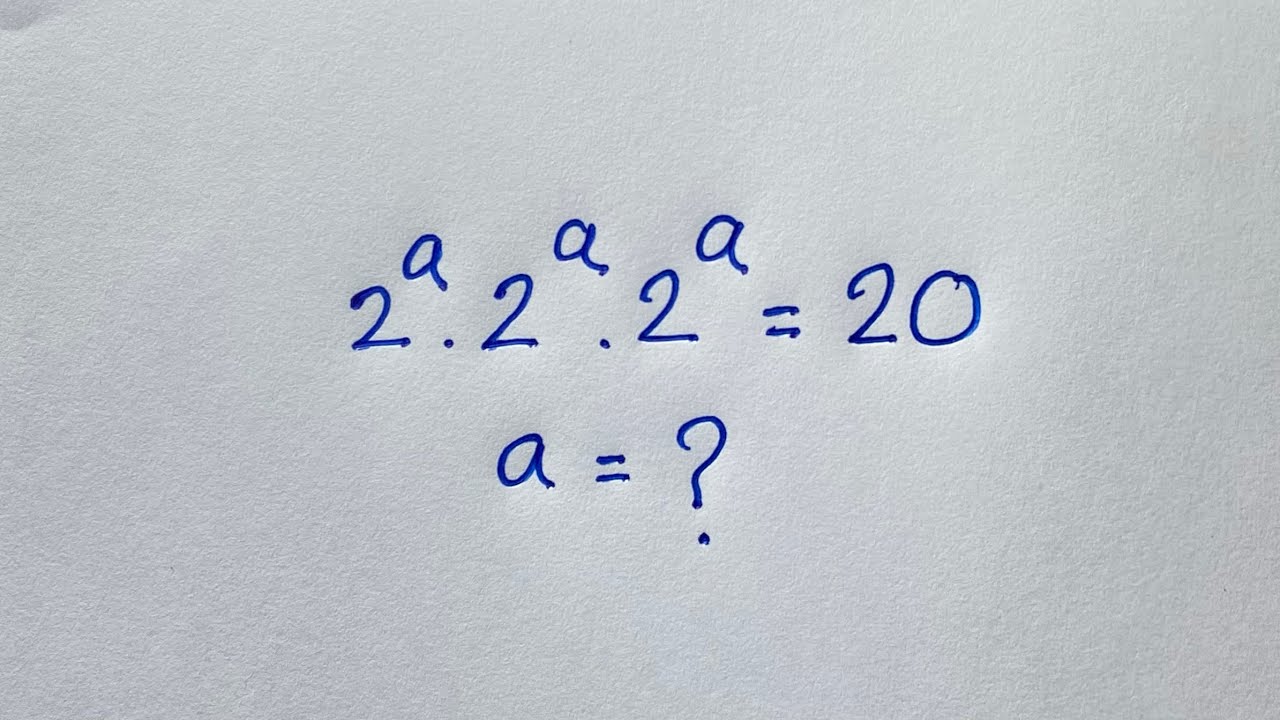 2^a . 2^a . 2^a = 20
a = ?